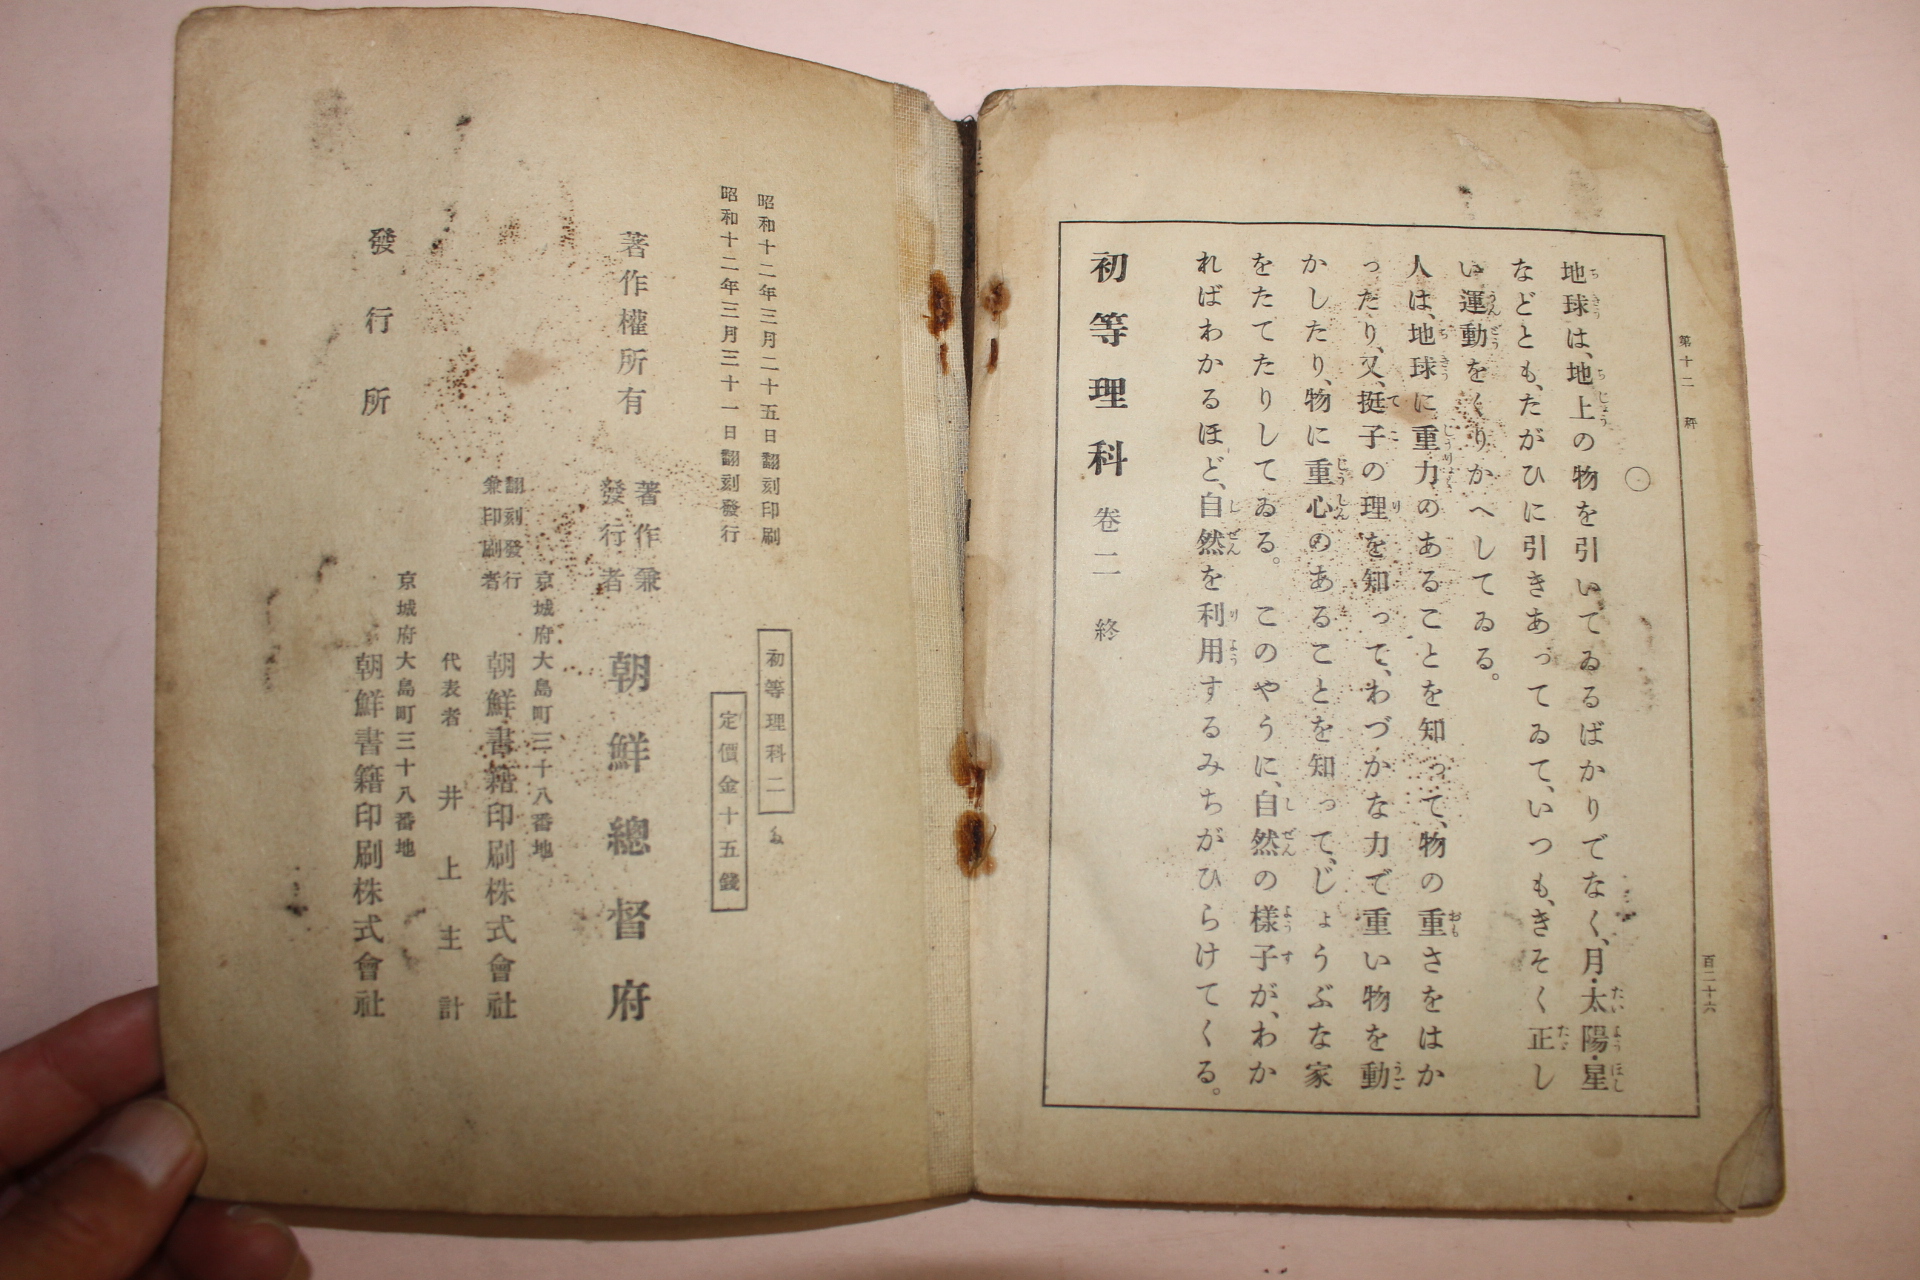 第十二 秤
百二十六
地球は、地上の物を引いてゐるばかりでなく、月・太陽・星
などとも、たがひに引きあってゐて、いつも、きそく正し
い運動をくりかへしてゐる。
人は、地球に重力のあることを知って、物の重さをはか
ったり、又、挺子の理を知って、わづかな力で重い物を動
かしたり、物に重心のあることを知って、じょうぶな家
をたてたりしてゐる。 このやうに、自然の様子が、わか
ればわかるほど、自然を利用するみちがひらけてくる。
初等理科 卷二 終
昭和十二年三月二十五日翻刻印刷
昭和十二年三月三十一日翻刻發行
初等理科二
定價金十五錢
著作權所有
著作兼
發行者
朝鮮總督府
京城府大島町三十八番地
翻刻發行
兼印刷者
朝鮮書籍印刷株式會社
代表者 井上主計
京城府大島町三十八番地
發行所
朝鮮書籍印刷株式會社